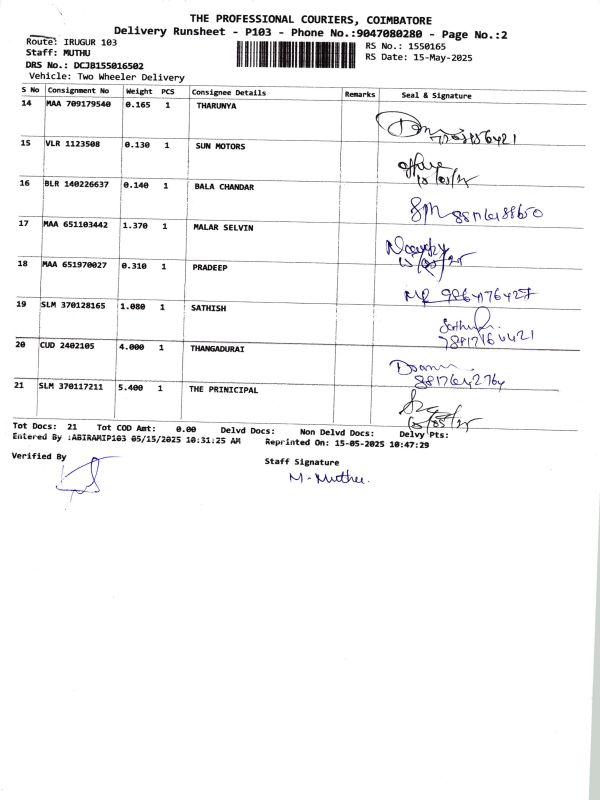 THE PROFESSIONAL COURIERS, COIMBATORE
Delivery Runsheet - P103 - Phone No.:9047080280 - Page No.:2
Route: IRUGUR 103 RS No.: 1550165
Staff: MUTHU RS Date: 15-May-2025
DRS No.: DCJB155016502
Vehicle: Two Wheeler Delivery
S No Consignment No Weight PCS Consignee Details Remarks Seal & Signature
14 MAA 709179540 0.165 1 THARUNYA
15 VLR 1123508 0.130 1 SUN MOTORS
15/05/25
16 BLR 140226637 0.140 1 BALA CHANDAR
17 MAA 651103442 1.370 1 MALAR SELVIN
15/05/25
18 MAA 651970027 0.310 1 PRADEEP
19 SLM 370128165 1.080 1 SATHISH
20 CUD 2402105 4.000 1 THANGADURAI
8817642764
21 SLM 370117211 5.400 1 THE PRINICIPAL
15/05/25
Tot Docs: 21 Tot COD Amt: 0.00 Delvd Docs: Non Delvd Docs: Delvy Pts:
Entered By :ABIRAMIP103 05/15/2025 10:31:25 AM Reprinted On: 15-05-2025 10:47:29
Verified By Staff Signature
M. Muthu.